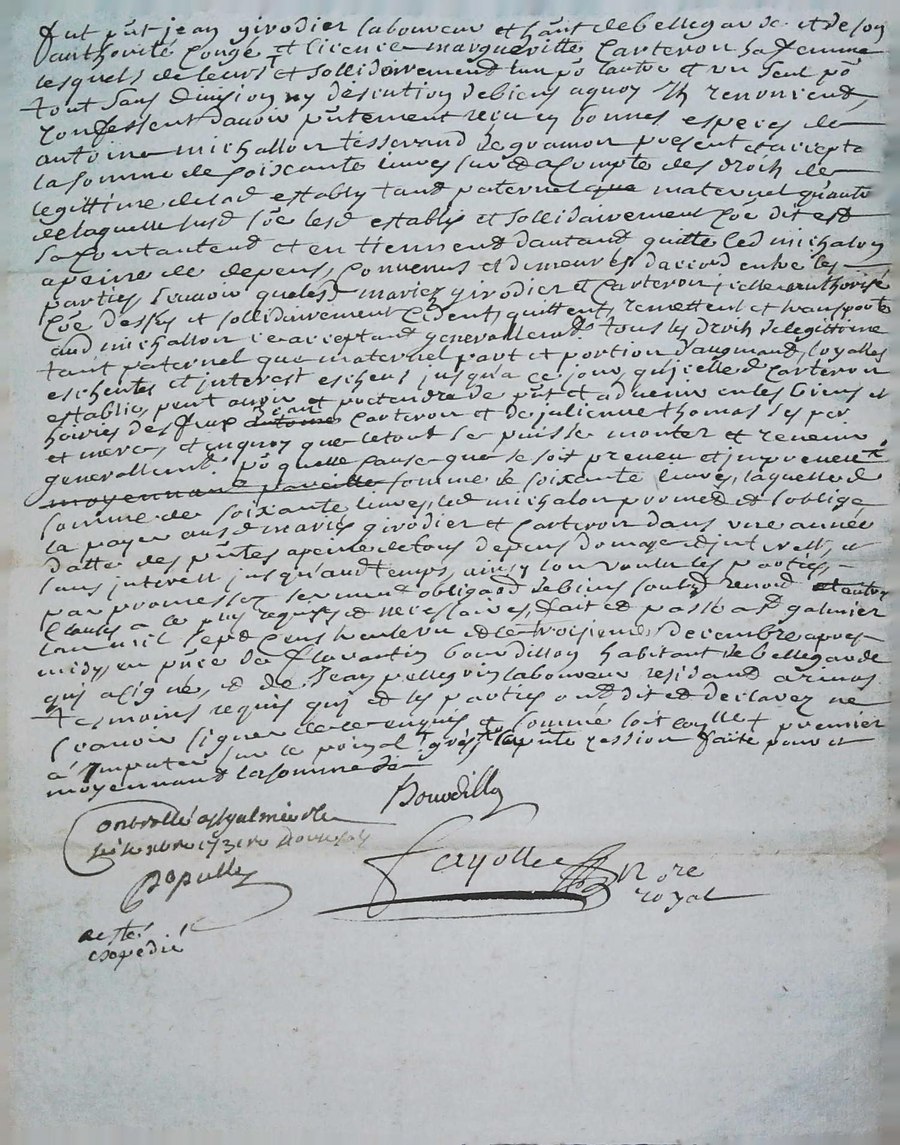 fut pnt jean girodier laboureur et hant de bellegarde et de son
authorité congé et licence margueritte Carteron sa femme
lesquels de leurs et sollidairement lun po lautre et un seul po
tout sans division ny discution de biens a quoy ils renoncent
confessent davoir pntement recu en bonnes especes de
antoine michallon tisserand de gramon present et accepta
la somme de soixante livres sur et a compte des droit de
legittime de lad establie tand paternel que maternel quante
de laquelle susd soe lesd establis et sollidairement coe dit est
sa contantend et en tiennend dautand quitte led michalon
a peine de depens, Convenus et demeures daccord entre les
parties scavoir que lesd mariez girodier et Carteron icelle authorisé
coe dessus et sollidairement cedent, quittent, remettent et transporte
aud michallon ce acceptant generallemt tous les droit de legittime
tant paternel que maternel part et portion daugmand, loyalles
escheutes et interest escheus jusqu'a ce jour, qu'icelle d Carteron
establie, peut avoir et pretendre de pnt et advenir en les biens et
hoiries des feux jean antoine Carteron et de julienne thomas ses per
et mere, et en quoy que le tout se puisse monter et revenir
generallemt po quelle cause que se soit preveu et impreveu
moyennant pareille somme de soixante livres, laquelle d
somme de soixante livres, led michalon promet et soblige
la payer ausd mariés girodier et Carteron dans une année
datte des pntes a peine de tous depens domage et interest, et
sans interest jusqu'aud temps, ainsy lon voulu les parties
par promesses serment obligaon de biens soubz renon et autre
Clauses a ce plus requises et necessaires, fait et passé a St galmier
lan mil sept cens trente un et le troisieme decembre apres
midy en pnce de florentin bourdillon habitant de bellegarde
qui a signé, et de jean pellegrin laboureur residand a
tesmoins requis qui et les parties ont dit et declarez ne
scavoir signer de ce enquis et sommé
a imputer sur le
moyennand la somme de la pnte cession faite pour et
Bourdillon
Controllé a St galmier le
Populle
Fayolle Nore
royal
acte
expedié